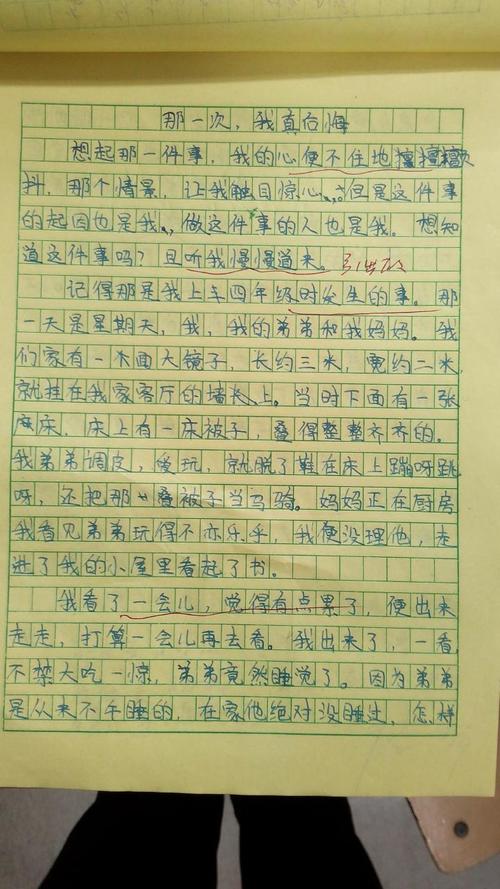 那一次，我真后悔
想起那一件事，我的心便不住地
抖，那个情景，让我触目惊心。但是这件事
的起因也是我，做这件事的人也是我。想知
道这件事吗？且听我慢慢道来。
记得那是我上年四年级时发生的事。那
一天是星期天，我，我的弟弟和我妈妈。我
们家有一木面大镜子，长约三米，宽约二米，
就挂在我家客厅的墙长上。当时下面有一张
床，床上有一床被子，叠得整整齐齐的。
我弟弟调皮，爱玩，就脱了鞋在床上蹦呀跳
呀，还把那叠被子当马骑。妈妈正在厨房
我看见弟弟玩得不亦乐乎，我便没理他，走
进了我的小屋里看起了书。
我看了一会儿，觉得有点累了，便出来
走走，打算一会儿再去看。我出来了，一看，
不禁大吃一惊，弟弟竟然睡觉了。因为弟弟
是从来不午睡的，在家他绝对没睡过，怎样